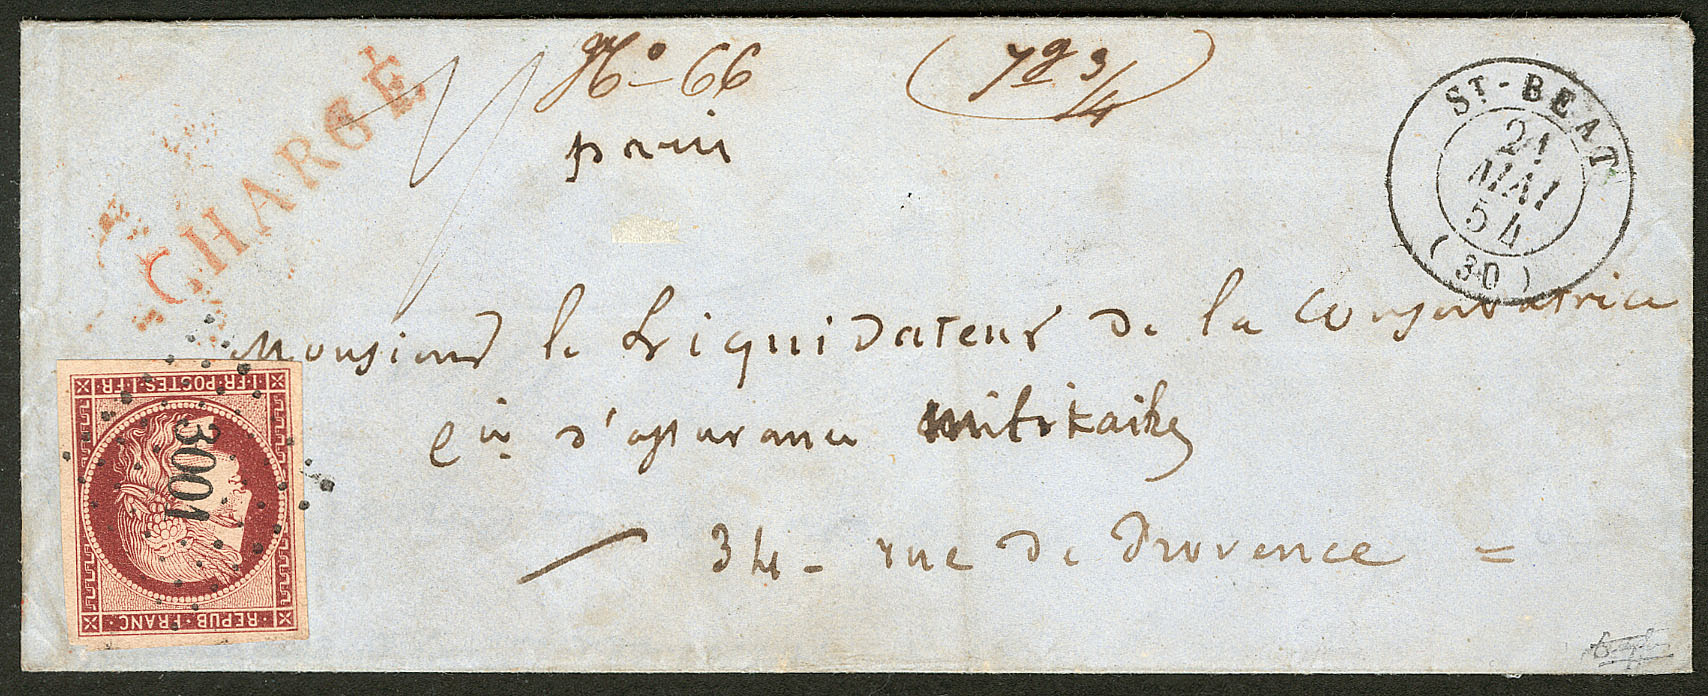 CHARGÉ
N° 66
(7g 3/4)
paris
ST-BEAT
21
MAI
54
(30)
Monsieur le Liquidateur de la Conservatrice
Cie d'assurance militaire
34 - rue de Provence =
1·FR·POSTES·1·FR
3001
·REPUB·FRANC·